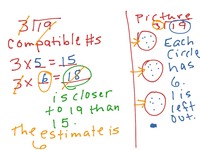 3⟌19
Compatible #s
3 × 5 = 15
3 × 6 = 18
is closer
to 19 than
15.
The estimate is
6
Picture
3⟌19
Each
Circle
has
6.
1 is
left
out.